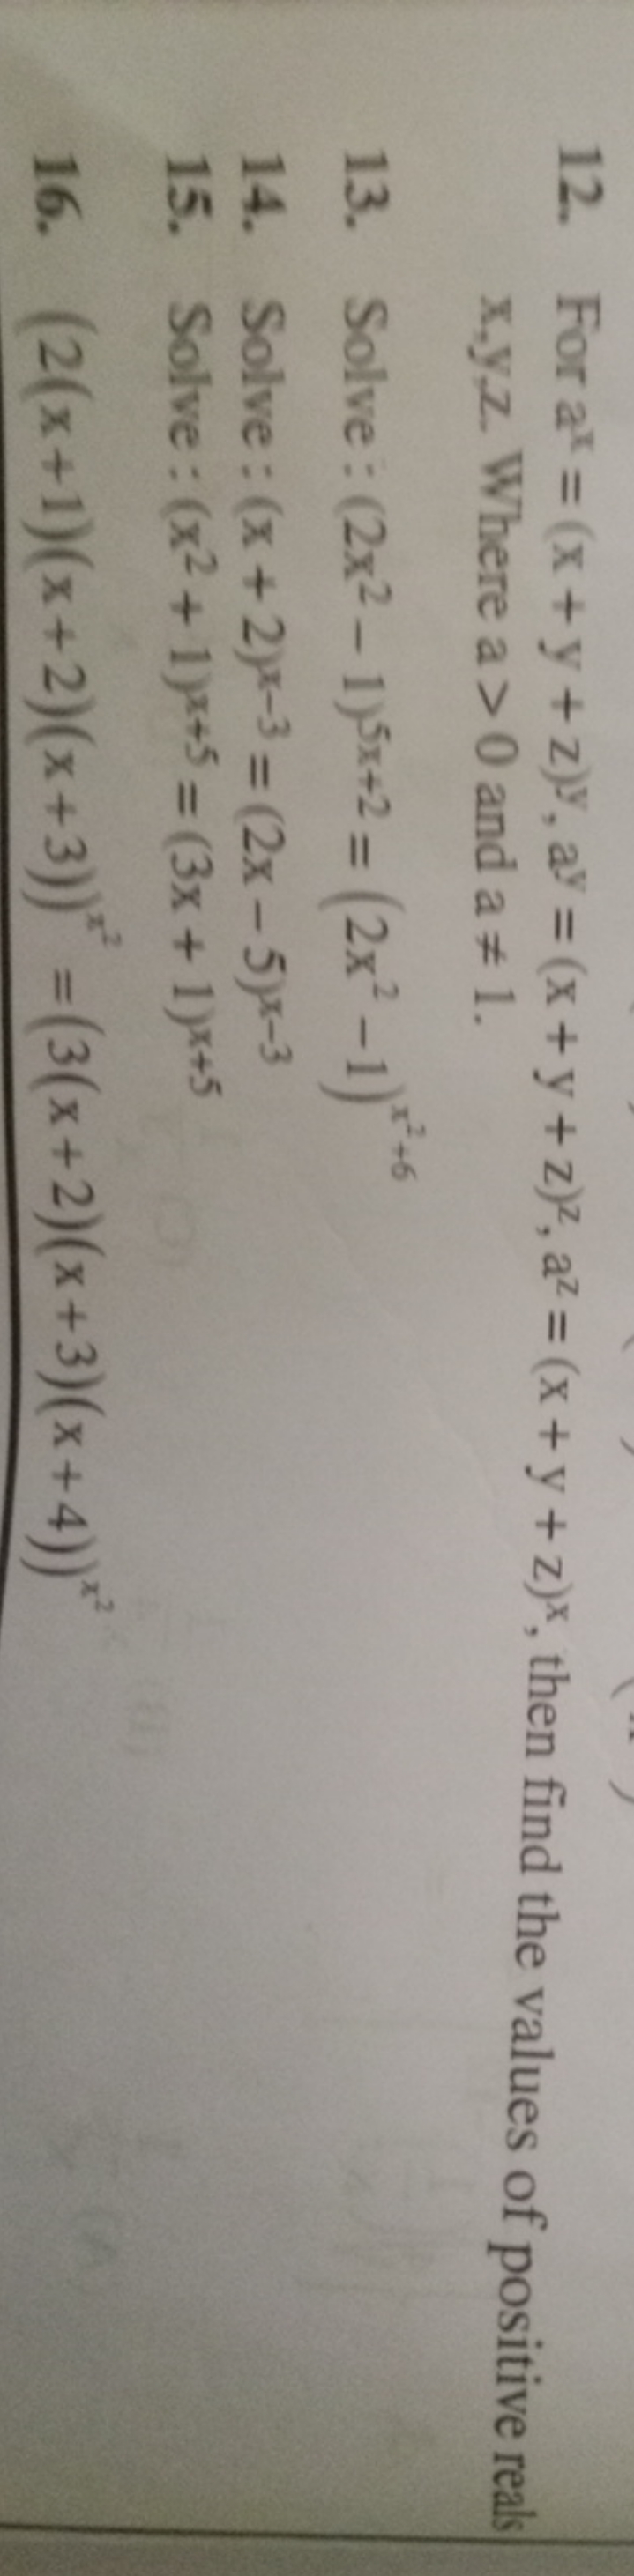 12. For aˣ = (x + y + z)ʸ, aʸ = (x + y + z)ᶻ, aᶻ = (x + y + z)ˣ, then find the values of positive reals
x,y,z. Where a > 0 and a ≠ 1.
13. Solve : (2x² – 1)⁵ˣ⁺² = (2x² – 1)^(x²+6)
14. Solve : (x + 2)ˣ⁻³ = (2x – 5)ˣ⁻³
15. Solve : (x² + 1)ˣ⁺⁵ = (3x + 1)ˣ⁺⁵
16. (2(x+1)(x+2)(x+3))^(x²) = (3(x+2)(x+3)(x+4))^(x²)